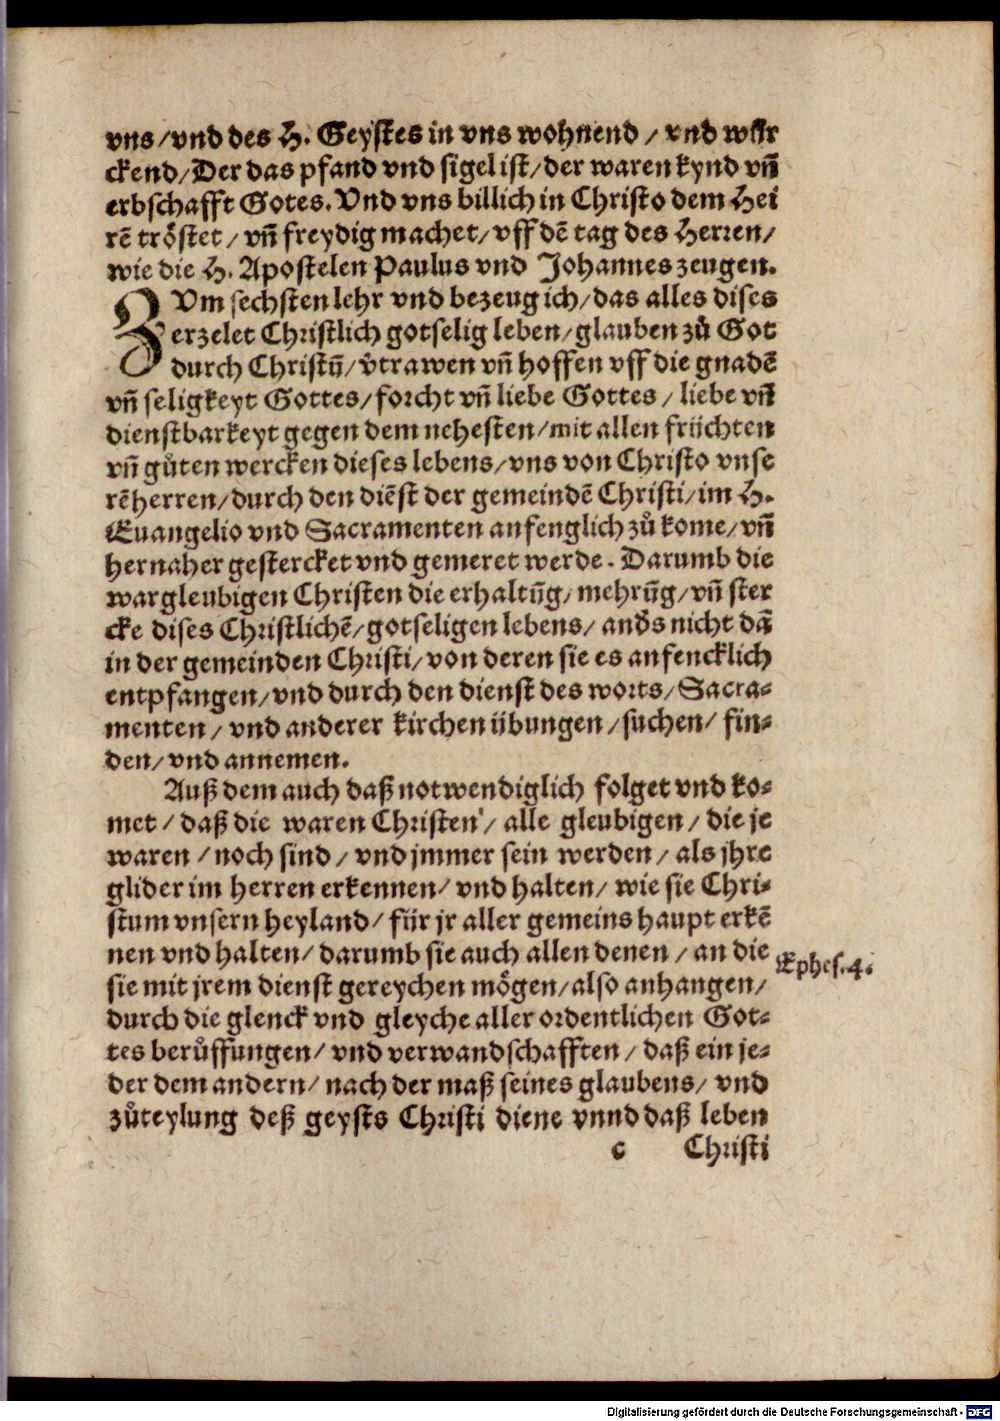 vns/vnd des H. Geystes in vns wohnend/vnd wür
ckend/Der das pfand vnd sigel ist/der waren kynd vñ
erbschafft Gotes. Vnd vns billich in Christo dem Hei
rē tröstet/vñ freydig machet/vff dē tag des Herren/
wie die H. Apostelen Paulus vnd Johannes zeugen.
ZVm sechsten lehr vnd bezeug ich/das alles dises
erzelet Christlich gotselig leben/glauben zů Got
durch Christū/v̄trawen vñ hoffen vff die gnadē
vñ seligkeyt Gottes/forcht vñ liebe Gottes/liebe vñ
dienstbarkeyt gegen dem nehesten/mit allen früchten
vñ gůten wercken dieses lebens/vns von Christo vnse
rēherren/durch den diēst der gemeindē Christi/im H.
Euangelio vnd Sacramenten anfenglich zů kome/vñ
hernaher gestercket vnd gemeret werde. Darumb die
wargleubigen Christen die erhaltūg/mehrūg/vñ ster
cke dises Christlichē/gotseligen lebens/anďs nicht dā
in der gemeinden Christi/von deren sie es anfencklich
entpfangen/vnd durch den dienst des worts/Sacra-
menten/vnd anderer kirchen übungen/suchen/fin-
den/vnd annemen.
Auß dem auch daß notwendiglich folget vnd ko-
met/daß die waren Christen/alle gleubigen/die je
waren/noch sind/vnd jmmer sein werden/als jhre
glider im herren erkennen/vnd halten/wie sie Chri-
stum vnsern heyland/für jr aller gemeins haupt erkē
nen vnd halten/darumb sie auch allen denen/an die
Ephes. 4.
sie mit jrem dienst gereychen mögen/also anhangen/
durch die glenck vnd gleyche aller ordentlichen Got-
tes berůffungen/vnd verwandschafften/daß ein je-
der dem andern/nach der maß seines glaubens/vnd
zůteylung deß geysts Christi diene vnnd daß leben
c Christi
Digitalisierung gefördert durch die Deutsche Forschungsgemeinschaft - DFG